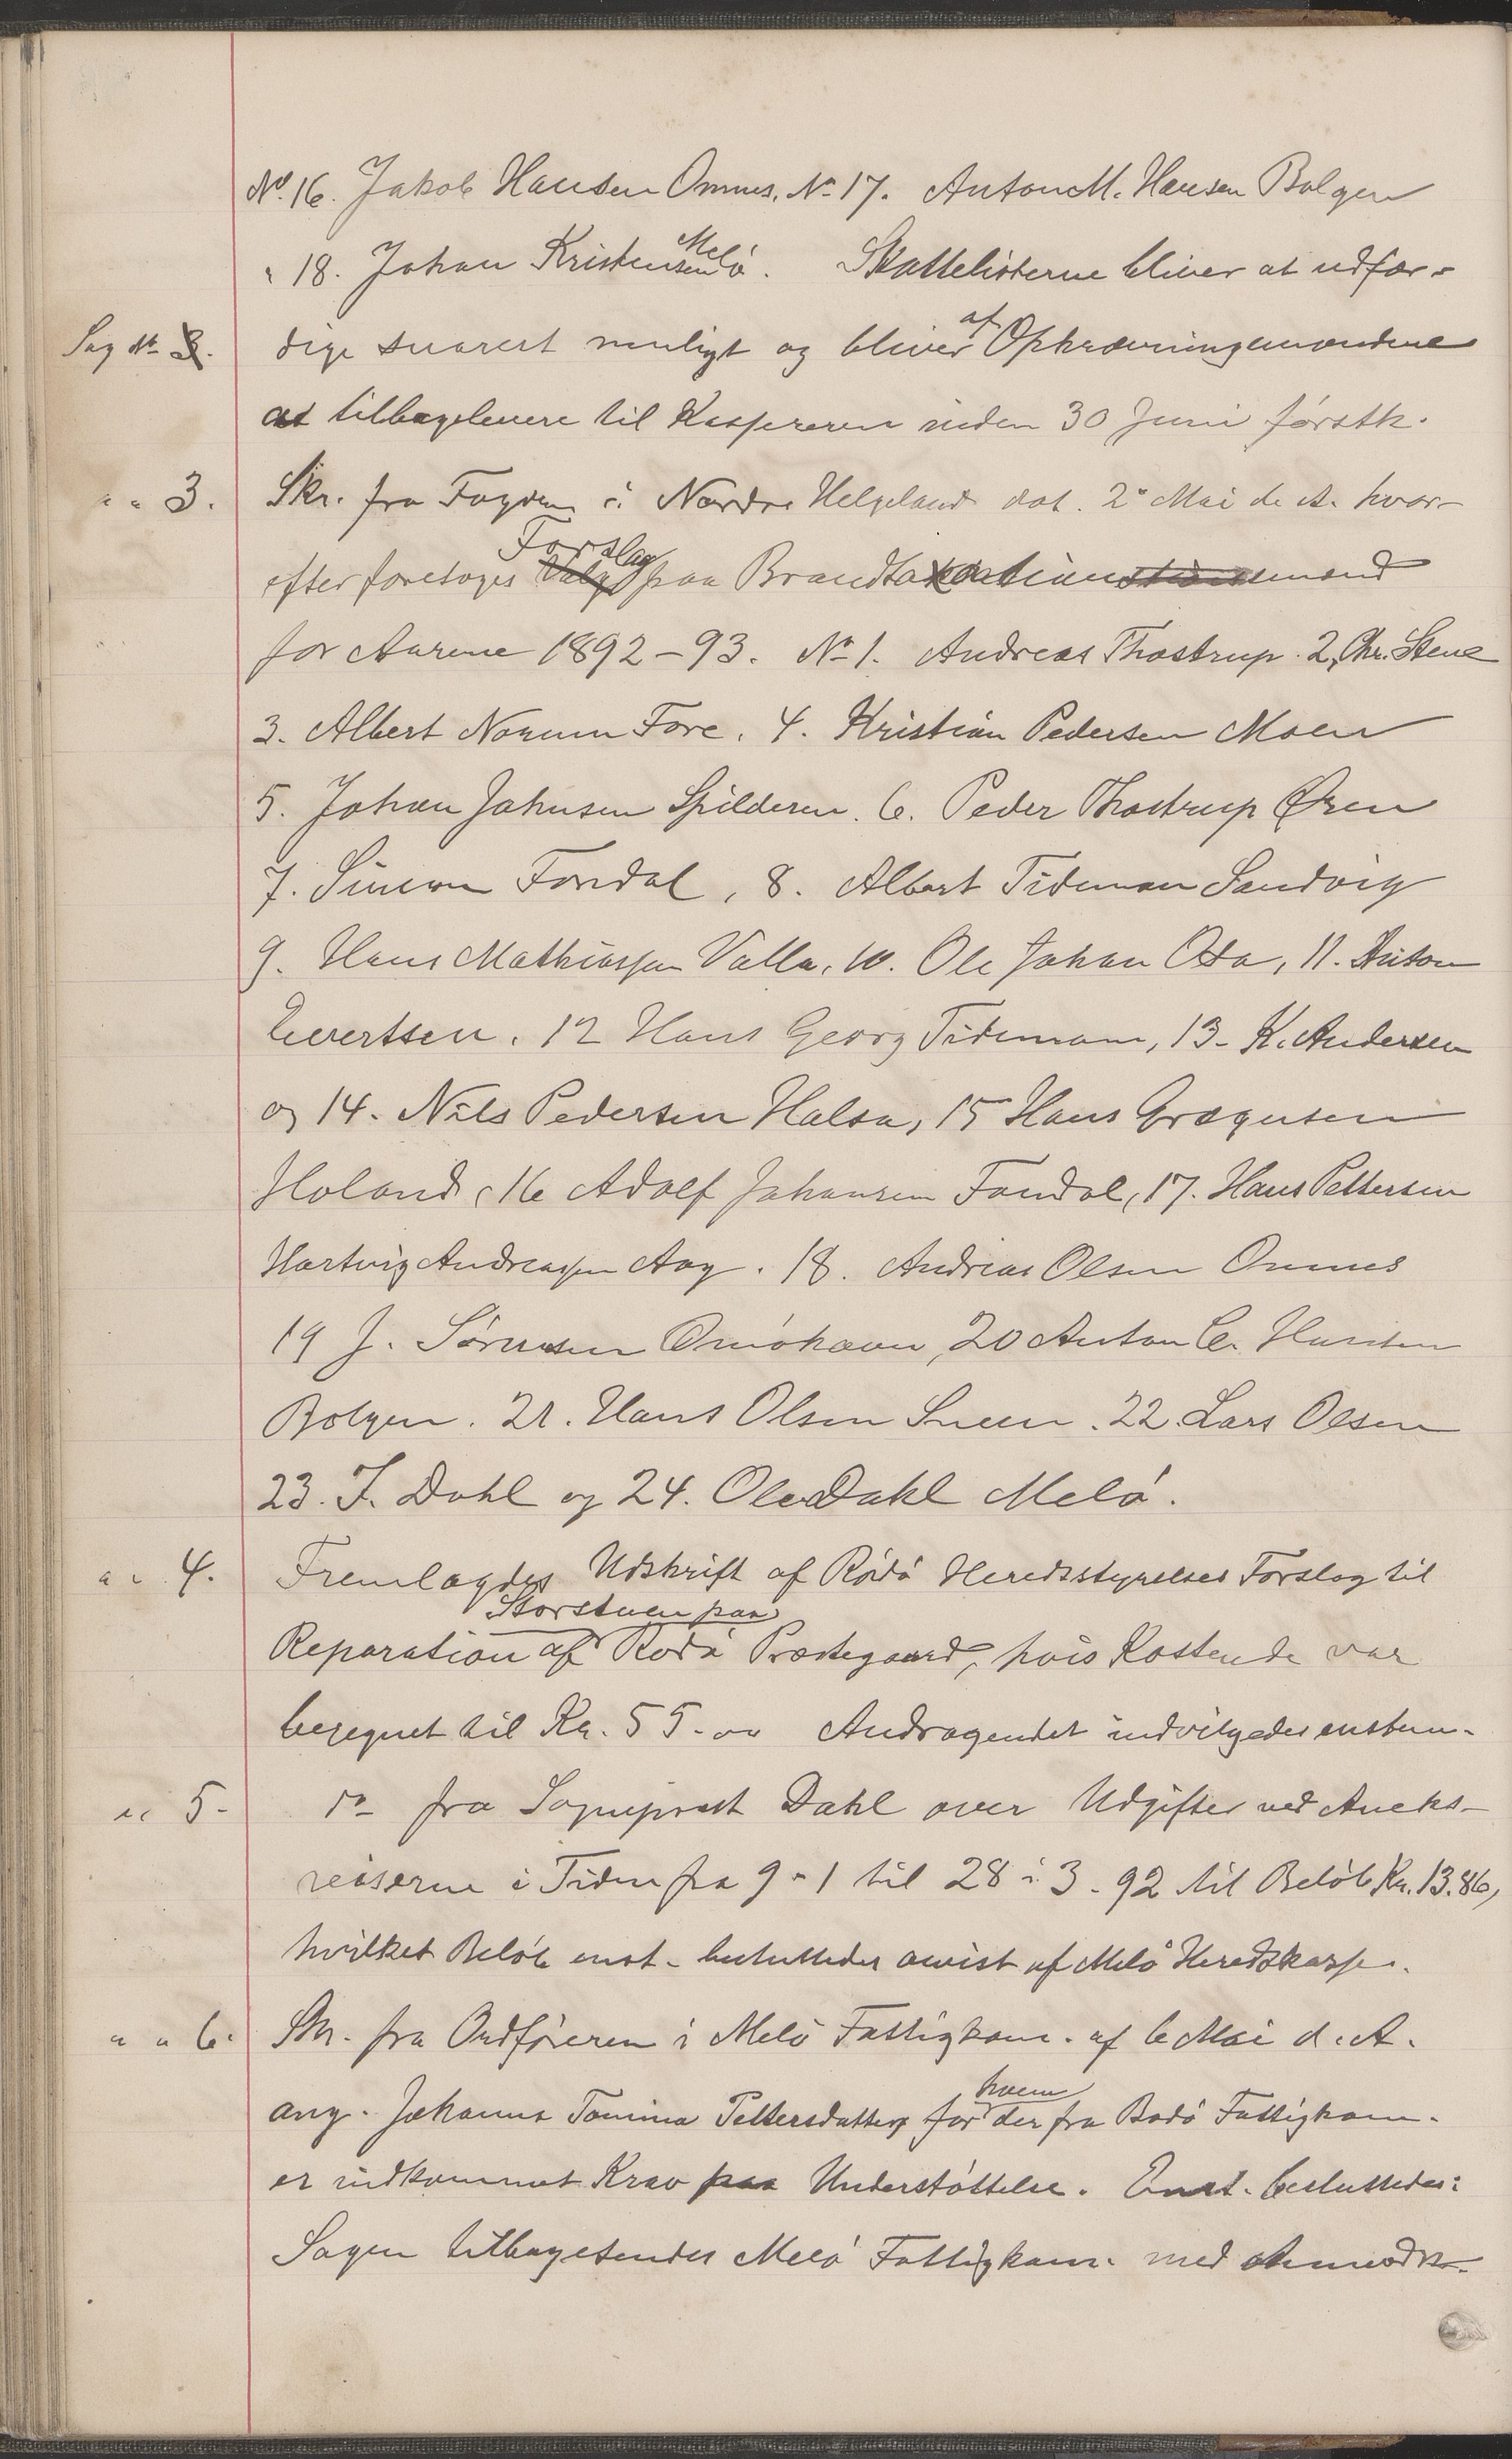 No. 16. Jakob Hansen Omnes, No 17. Anton M. Hansen Bolgen
" 18. Johan Kristensen Melö. Skattelisterne bliver at udfær-
Sag No 3. dige snarest muligt og bliver af Opkrævningsmændene
at tilbagelevere til Kassereren inden 30 Juni förstk.
" " 3. Skr. fra Fogden i Nordre Helgeland dat. 2 Mai d. A. hvor-
efter foretoges Valg Forslag paa Brandtaxationsmænd
for Aarene 1892-93. No 1. Andreas Thostrup. 2, Chr. Stene
3. Albert Norum Fore. 4. Kristian Pedersen Moen
5. Johan Johnsen Spilderen. 6. Peder Thostrup Øren
7. Simon Fondal, 8. Albert Tideman Sandvig
9. Hans Mathiassen Valla, 10. Ole Johan Osa, 11. Anton
Evertsen. 12 Hans Georg Tidemann, 13- K. Andersen
og 14. Nils Pedersen Halsa, 15 Hans Grægusen
Holand, 16 Adolf Johansen Fondal, 17. Hans Pettersen
Hartvig Andreassen Aag. 18. Andreas Olsen Omnes
19 J. Sörensen Omöhavn, 20 Anton C. Hansen
Bolgen. 21. Hans Olsen Sneen. 22. Lars Olsen
23. J. Dahl og 24. Ole Dahl Melö.
" " 4. Fremlagdes Udskrift af Rödö Heredsstyrelses Forslag til
Reparation af Storstuen paa Rödö Præstegaard, hvis Kostende var
beregnet til Kr. 55.00 Andragendet indvilgedes enstem.
" " 5- do fra Sogneprest Dahl over Udgifter ved Aneks-
reiserne i Tiden fra 9-1 til 28 i 3-92 til Belöb Kr. 13.86,
hvilket Belöb enst. besluttedes anvist af Melö Heredskasse.
" " 6. Skr. fra Ordföreren i Melö Fattigkom. af 6 Mai d. A.
ang. Johanna Tomina Pettersdatter for hvem der fra Bodö Fattigkom.
er indkommet Krav paa Understöttelse. Enst. besluttedes:
Sagen tilbagesendes Melö Fattigkom. med